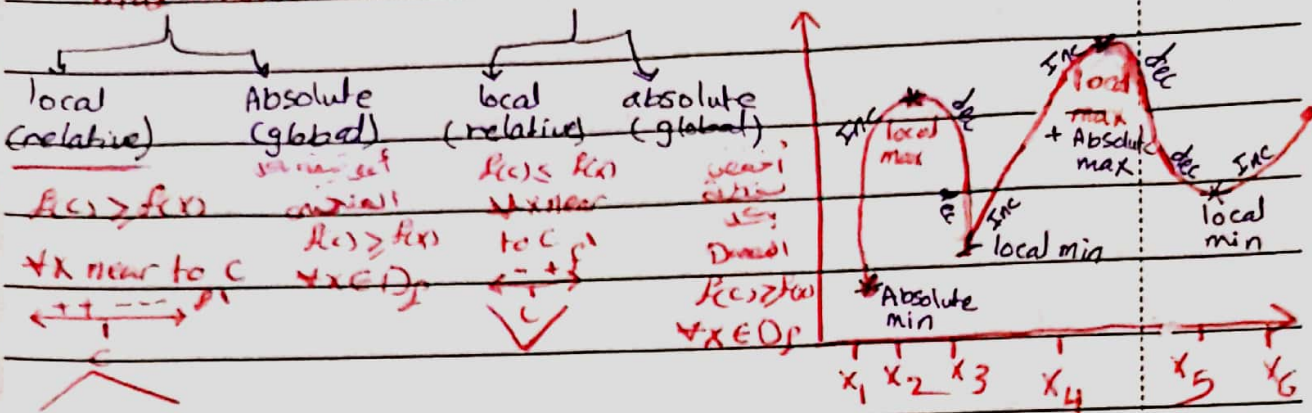 local
(relative)
f(c) ≥ f(x)
∀x near to C
++ --- f'
c
Absolute
(global)
f(c) ≥ f(x)
∀x ∈ Df
local
(relative)
f(c) ≤ f(x)
∀x near
to C
- + f'
c
absolute
(global)
f(c) ≥ f(x)
∀x ∈ Df
Inc
local
max
dec
Absolute
min
Inc
local min
Inc
local
max
+ Absolute
max
dec
dec
Inc
local
min
x1 x2 x3 x4 x5 x6